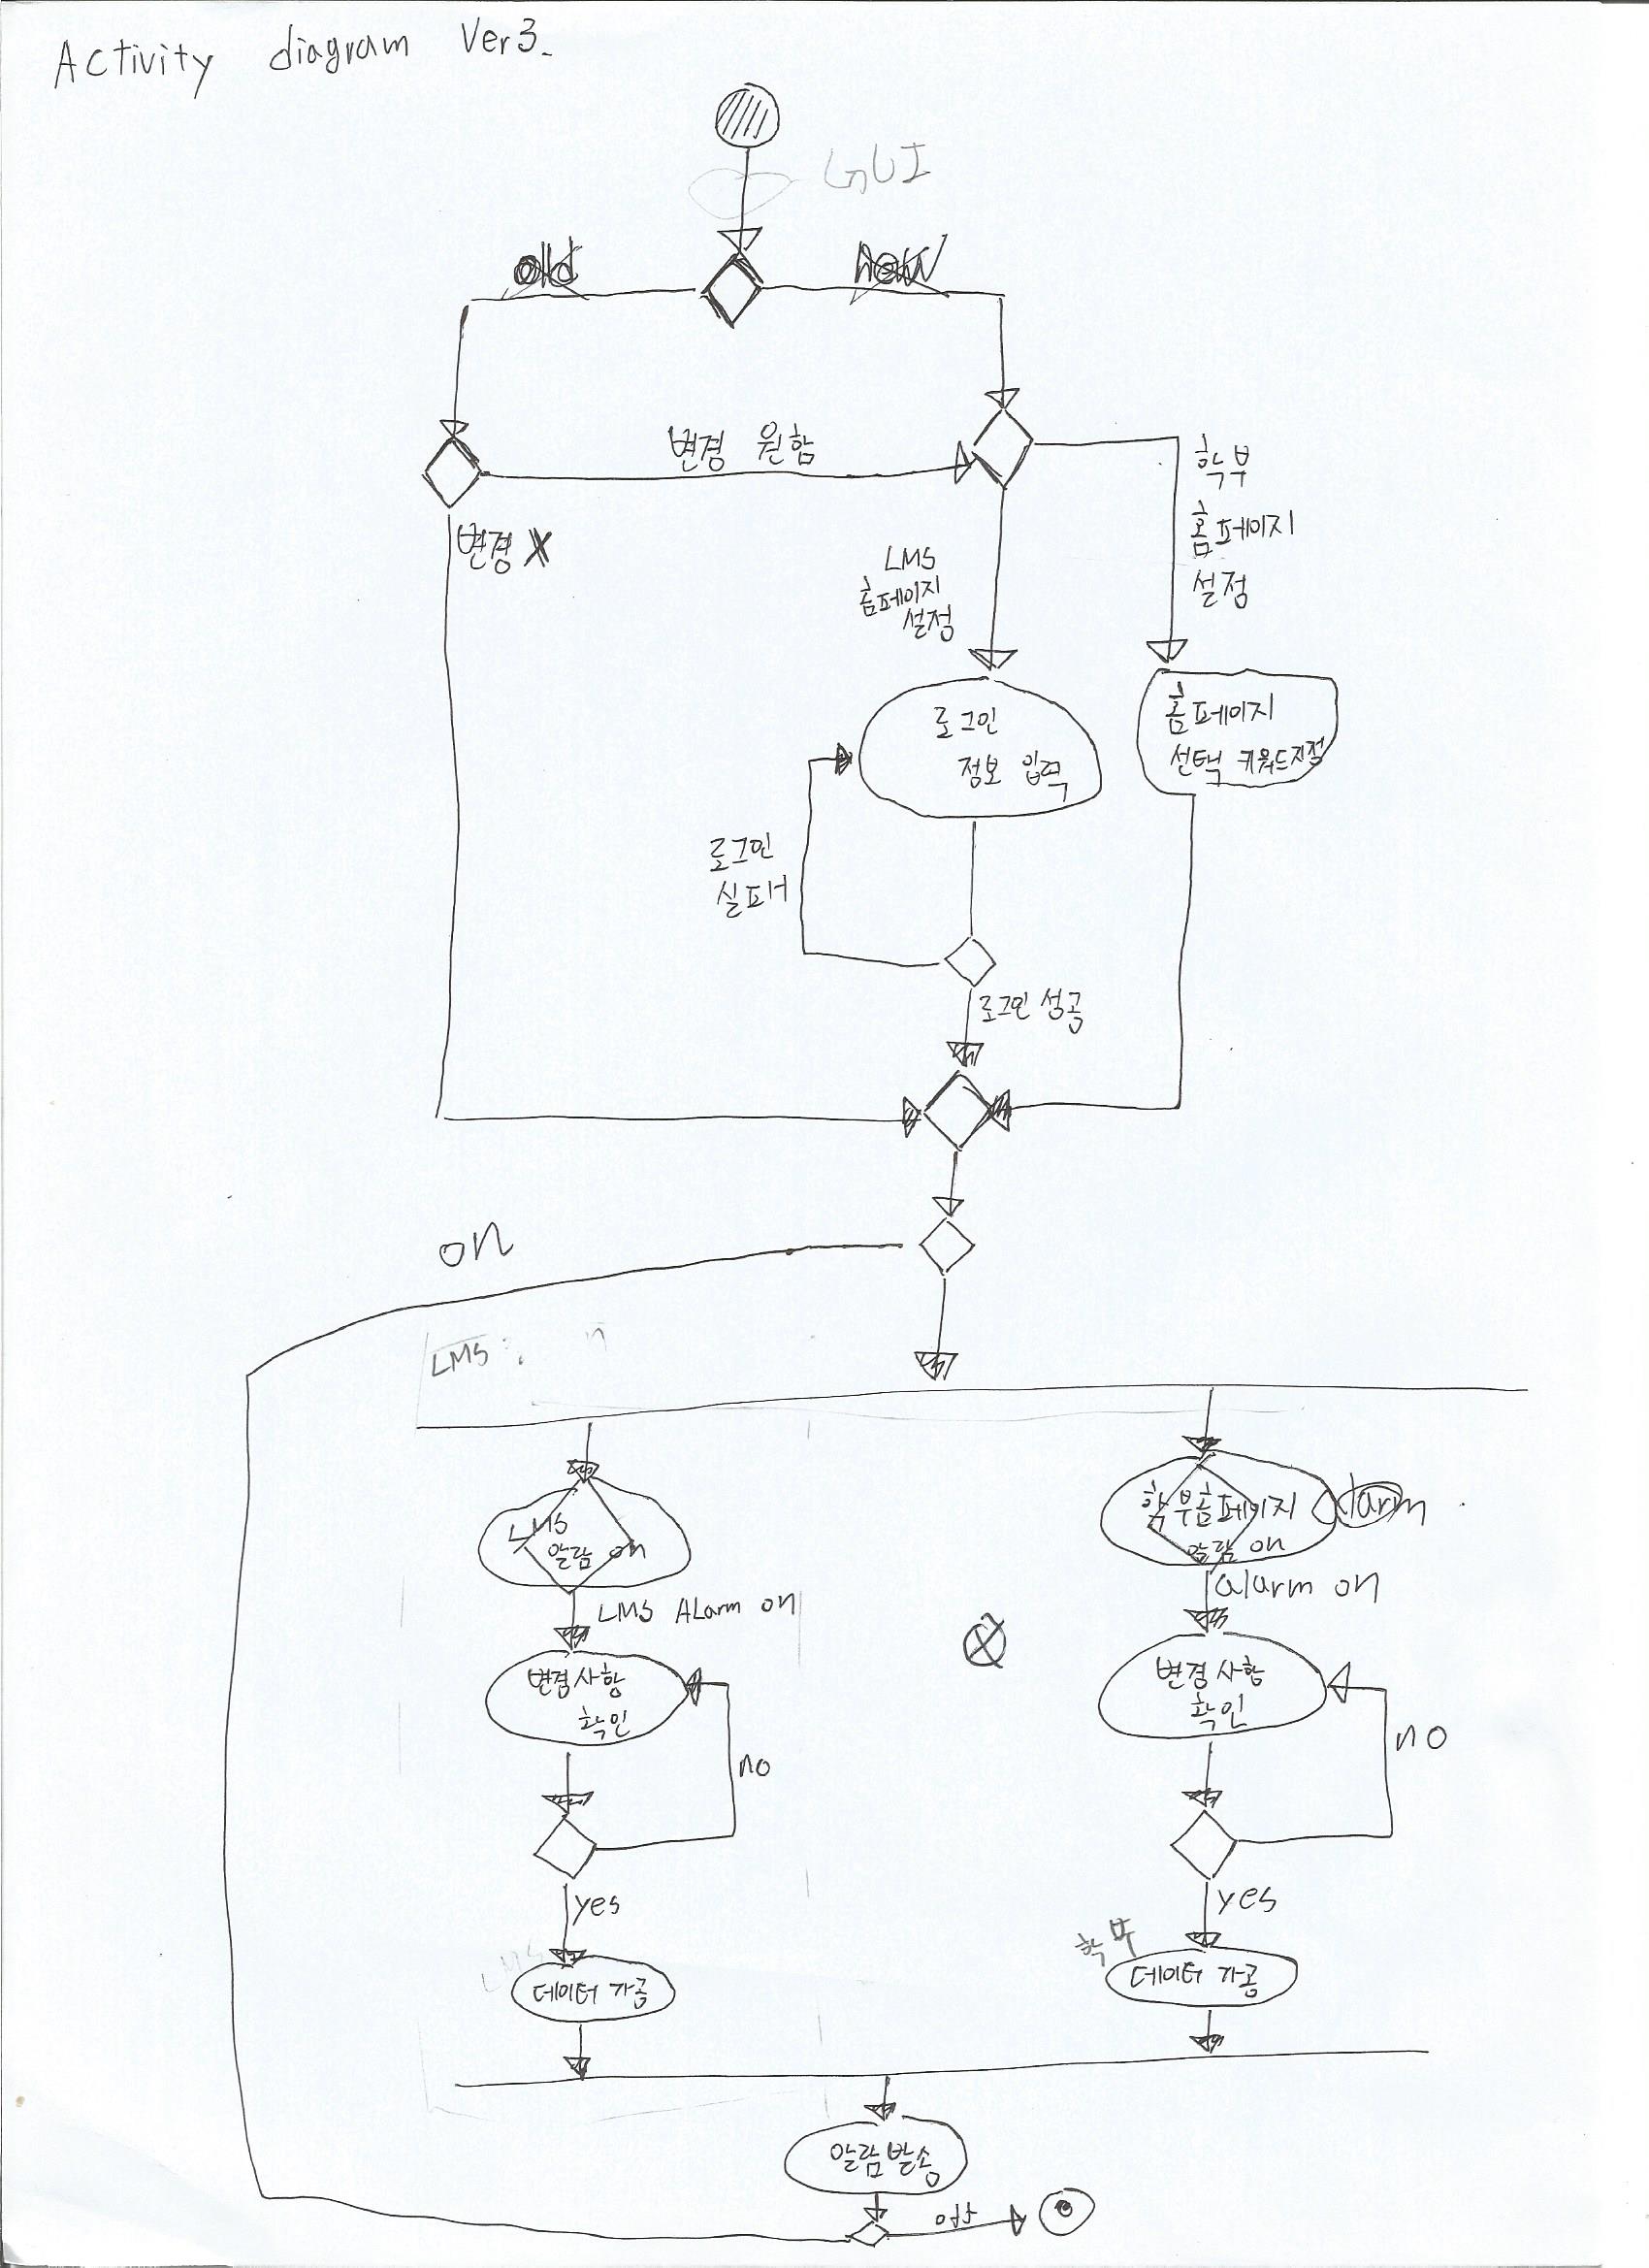 Activity diagram Ver3.
GUI
old
new
변경 원함
학부
홈페이지
설정
변경 X
LMS
홈페이지
설정
로그인
정보 입력
홈페이지
선택 키워드지정
로그인
실패
로그인 성공
on
LMS
LMS
알람 on
학부홈페이지 alarm
알람 on
LMS ALarm on
alarm on
변경사항
확인
변경사항
확인
no
no
yes
yes
LMS
데이터 가공
학부
데이터 가공
알람발송
off